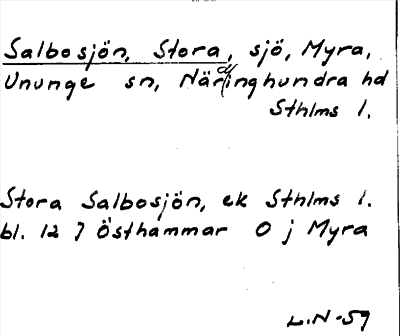 Salbosjön, Stora, sjö, Myra,
Ununge sn, Närdinghundra hd
Sthlms l.
Stora Salbosjön, ek Sthlms l.
bl. 12 7 Östhammar O j Myra
L.N-59